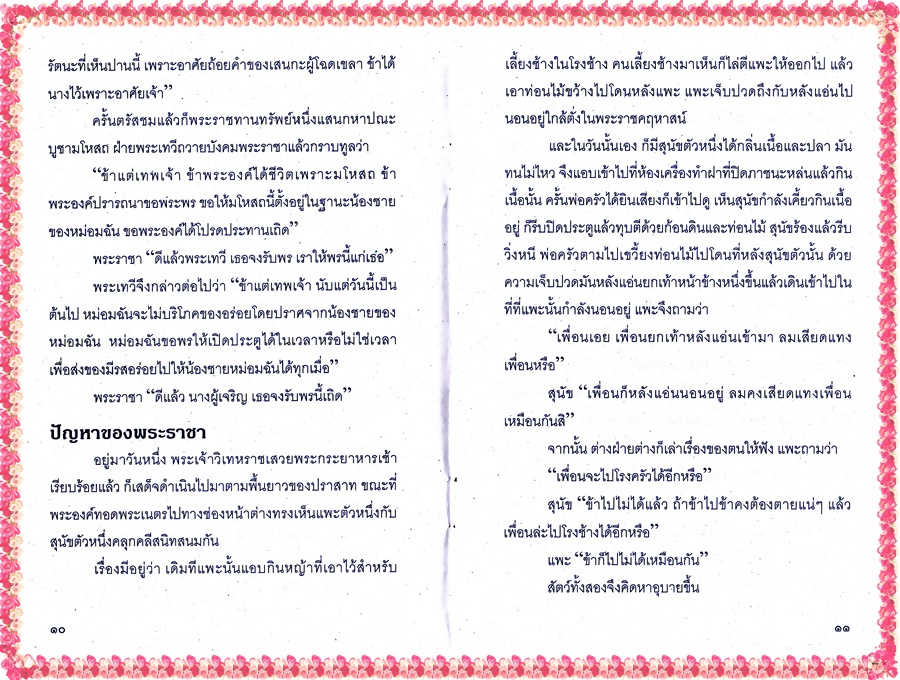 รัตนะที่เห็นปานนี้ เพราะอาศัยถ้อยคำของเสนกะผู้โฉดเขลา ข้าได้
นางไว้เพราะอาศัยเจ้า”
ครั้นตรัสชมแล้วก็พระราชทานทรัพย์หนึ่งแสนกหาปณะ
บูชามโหสถ ฝ่ายพระเทวีถวายบังคมพระราชาแล้วกราบทูลว่า
“ข้าแต่เทพเจ้า ข้าพระองค์ได้ชีวิตเพราะมโหสถ ข้า
พระองค์ปรารถนาขอพระพร ขอให้มโหสถนี้ตั้งอยู่ในฐานะน้องชาย
ของหม่อมฉัน ขอพระองค์ได้โปรดประทานเถิด”
พระราชา “ดีแล้วพระเทวี เธอจงรับพร เราให้พรนี้แก่เธอ”
พระเทวีจึงกล่าวต่อไปว่า “ข้าแต่เทพเจ้า นับแต่วันนี้เป็น
ต้นไป หม่อมฉันจะไม่บริโภคของอร่อยโดยปราศจากน้องชายของ
หม่อมฉัน หม่อมฉันขอพรให้เปิดประตูได้ในเวลาหรือไม่ใช่เวลา
เพื่อส่งของมีรสอร่อยไปให้น้องชายหม่อมฉันได้ทุกเมื่อ”
พระราชา “ดีแล้ว นางผู้เจริญ เธอจงรับพรนี้เถิด”
ปัญหาของพระราชา
อยู่มาวันหนึ่ง พระเจ้าวิเทหราชเสวยพระกระยาหารเช้า
เรียบร้อยแล้ว ก็เสด็จดำเนินไปมาตามพื้นยาวของปราสาท ขณะที่
พระองค์ทอดพระเนตรไปทางช่องหน้าต่างทรงเห็นแพะตัวหนึ่งกับ
สุนัขตัวหนึ่งคลุกคลีสนิทสนมกัน
เรื่องมีอยู่ว่า เดิมทีแพะนั้นแอบกินหญ้าที่เอาไว้สำหรับ
๑๐
เลี้ยงช้างในโรงช้าง คนเลี้ยงช้างมาเห็นก็ไล่ตีแพะให้ออกไป แล้ว
เอาท่อนไม้ขว้างไปโดนหลังแพะ แพะเจ็บปวดถึงกับหลังแอ่นไป
นอนอยู่ใกล้ตั่งในพระราชคฤหาสน์
และในวันนั้นเอง ก็มีสุนัขตัวหนึ่งได้กลิ่นเนื้อและปลา มัน
ทนไม่ไหว จึงแอบเข้าไปที่ห้องเครื่องทำฝาที่ปิดภาชนะหล่นแล้วกิน
เนื้อนั้น ครั้นพ่อครัวได้ยินเสียงก็เข้าไปดู เห็นสุนัขกำลังเคี้ยวกินเนื้อ
อยู่ ก็รีบปิดประตูแล้วทุบตีด้วยก้อนดินและท่อนไม้ สุนัขร้องแล้วรีบ
วิ่งหนี พ่อครัวตามไปเขวี้ยงท่อนไม้ไปโดนที่หลังสุนัขตัวนั้น ด้วย
ความเจ็บปวดมันหลังแอ่นยกเท้าหน้าข้างหนึ่งขึ้นแล้วเดินเข้าไปใน
ที่ที่แพะนั้นกำลังนอนอยู่ แพะจึงถามว่า
“เพื่อนเอย เพื่อนยกเท้าหลังแอ่นเข้ามา ลมเสียดแทง
เพื่อนหรือ”
สุนัข “เพื่อนก็หลังแอ่นนอนอยู่ ลมคงเสียดแทงเพื่อน
เหมือนกันสิ”
จากนั้น ต่างฝ่ายต่างก็เล่าเรื่องของตนให้ฟัง แพะถามว่า
“เพื่อนจะไปโรงครัวได้อีกหรือ”
สุนัข “ข้าไปไม่ได้แล้ว ถ้าข้าไปข้าคงต้องตายแน่ๆ แล้ว
เพื่อนล่ะไปโรงช้างได้อีกหรือ”
แพะ “ข้าก็ไปไม่ได้เหมือนกัน”
สัตว์ทั้งสองจึงคิดหาอุบายขึ้น
๑๑